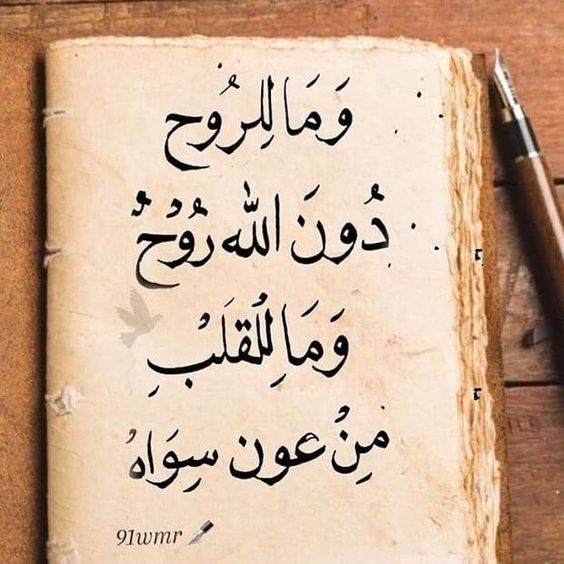 وَمَا لِلرُوح
دُونَ الله رُوْحٌ
وَمَا لِلْقلَبْ
مِنْ عون سِوَاهُ
91wmr